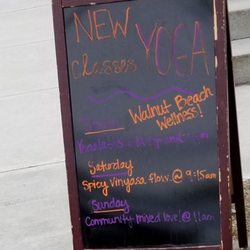 NEW YOGA
classes
Walnut Beach
Wellness!
Saturday
Spicy Vinyasa flow @ 9:15am
Sunday
Community mixed level @ 11am